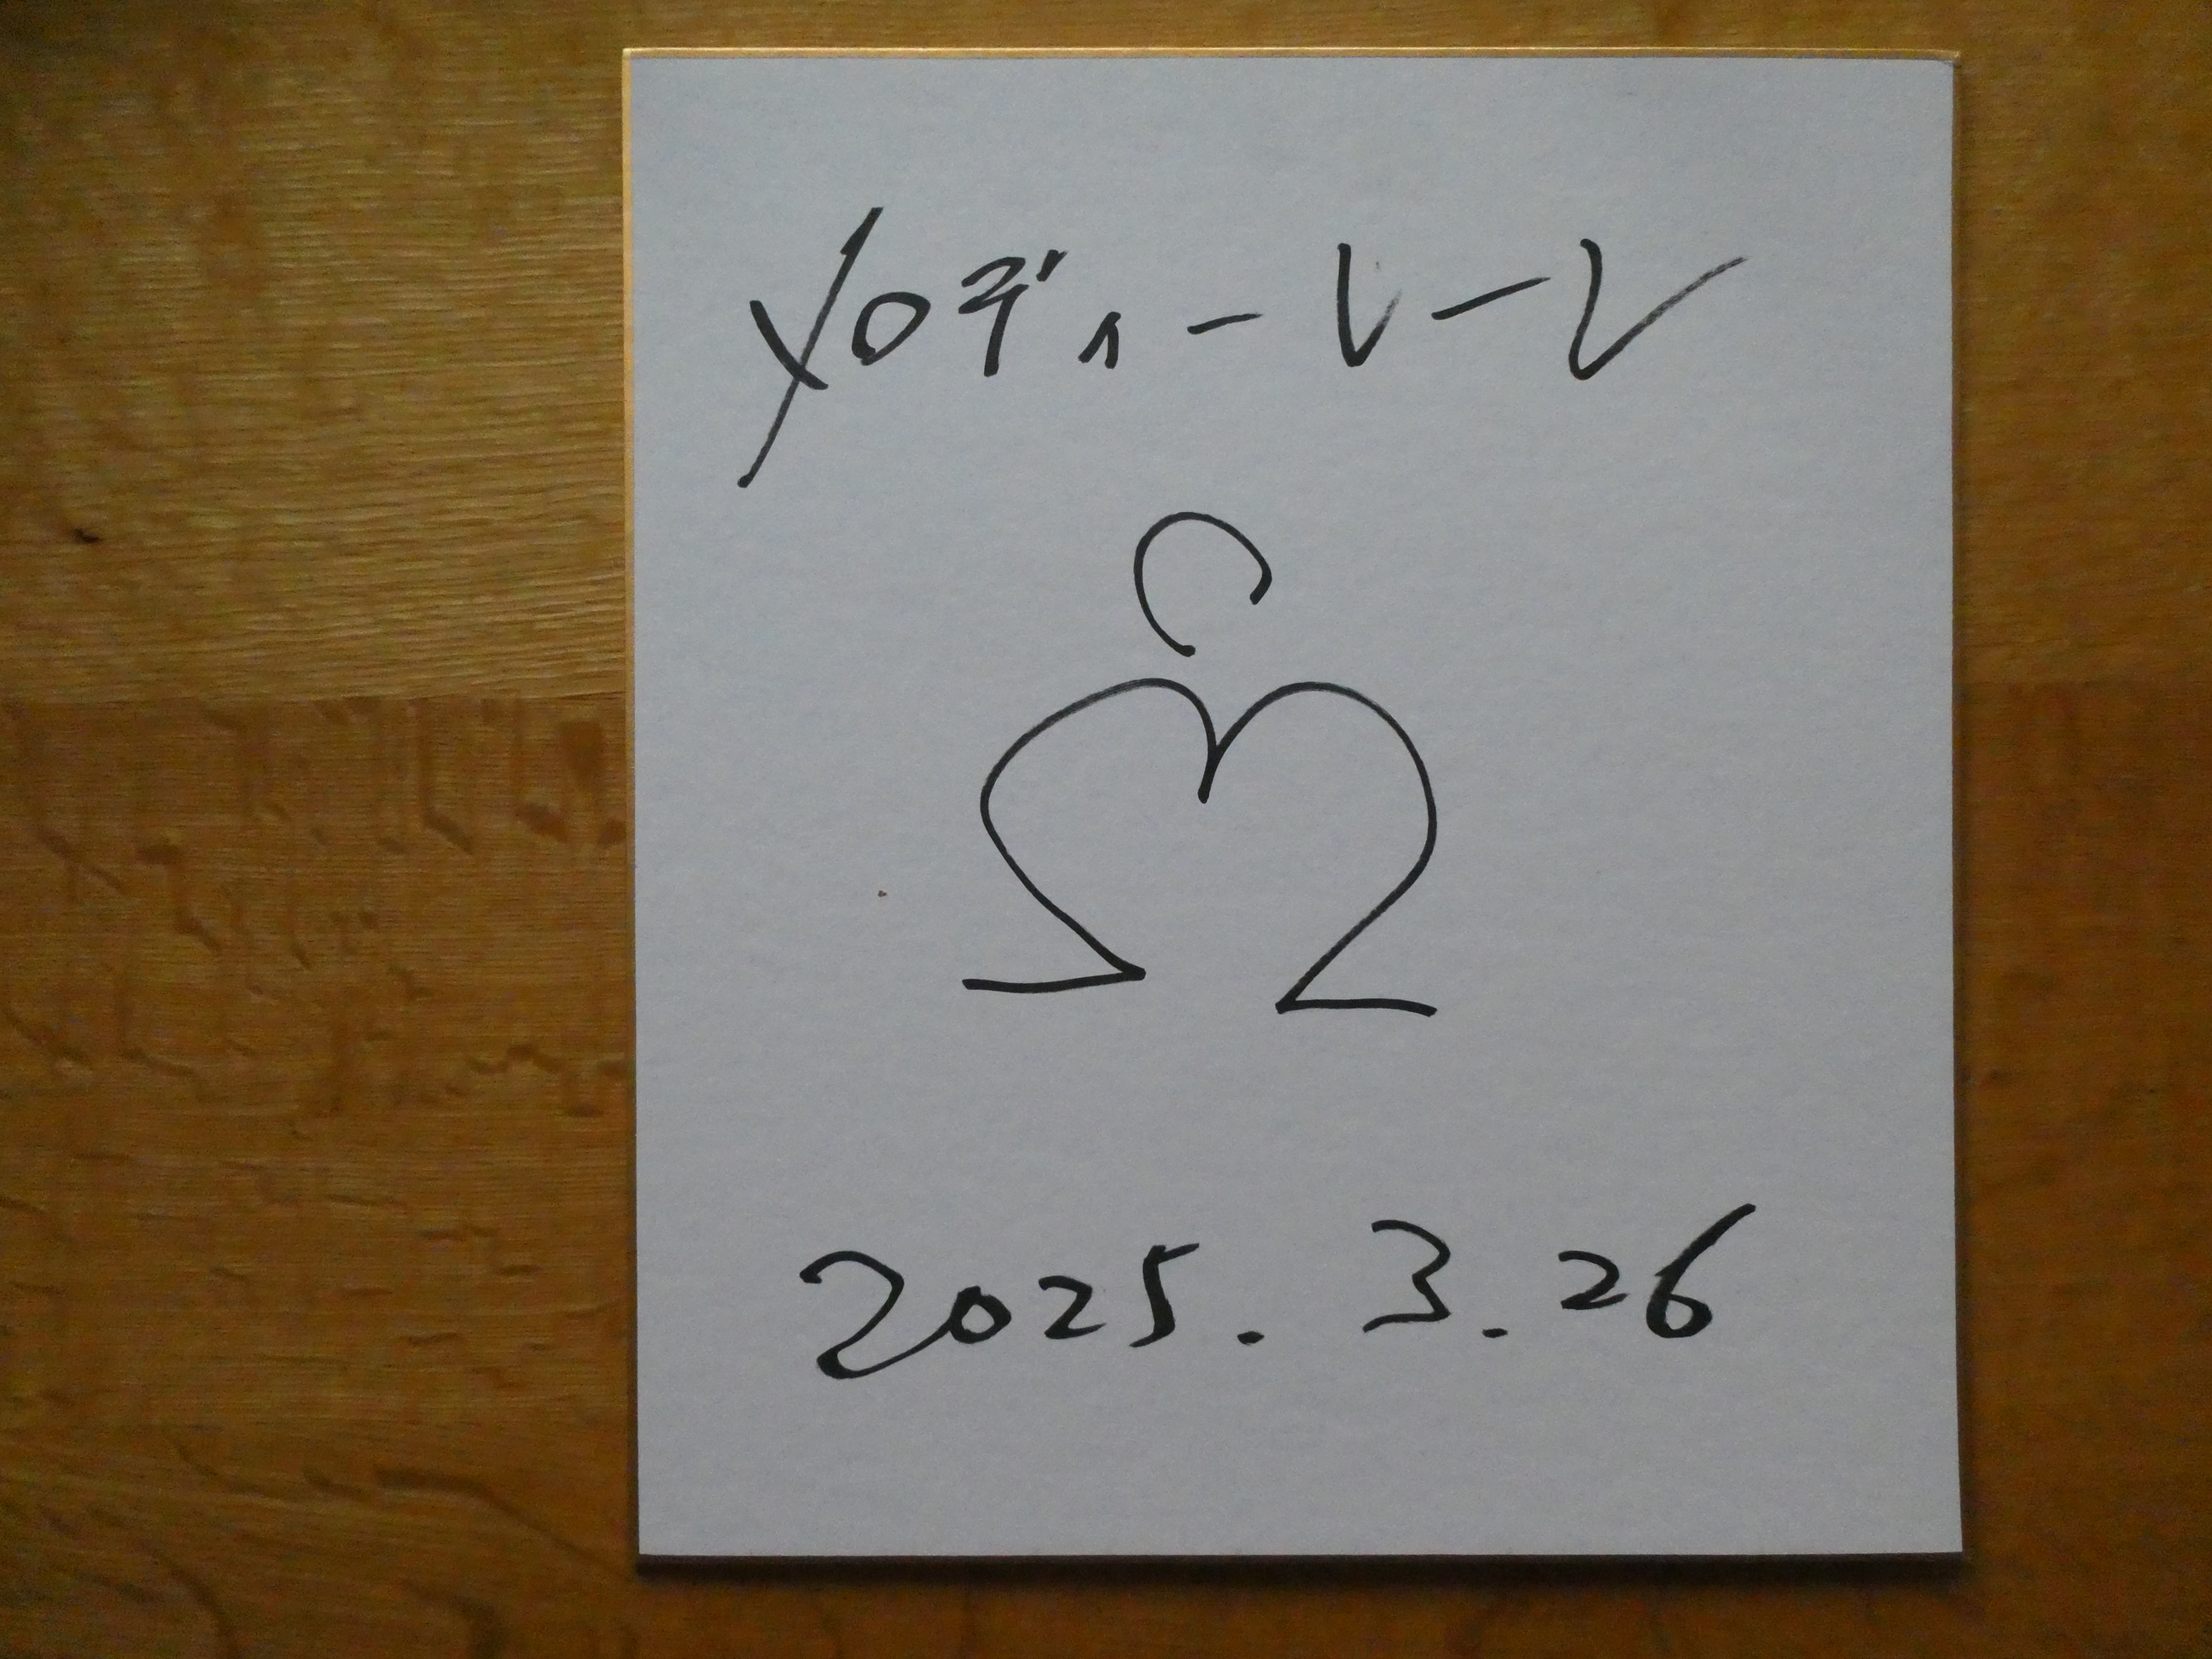 メロディーレーン
2025.3.26